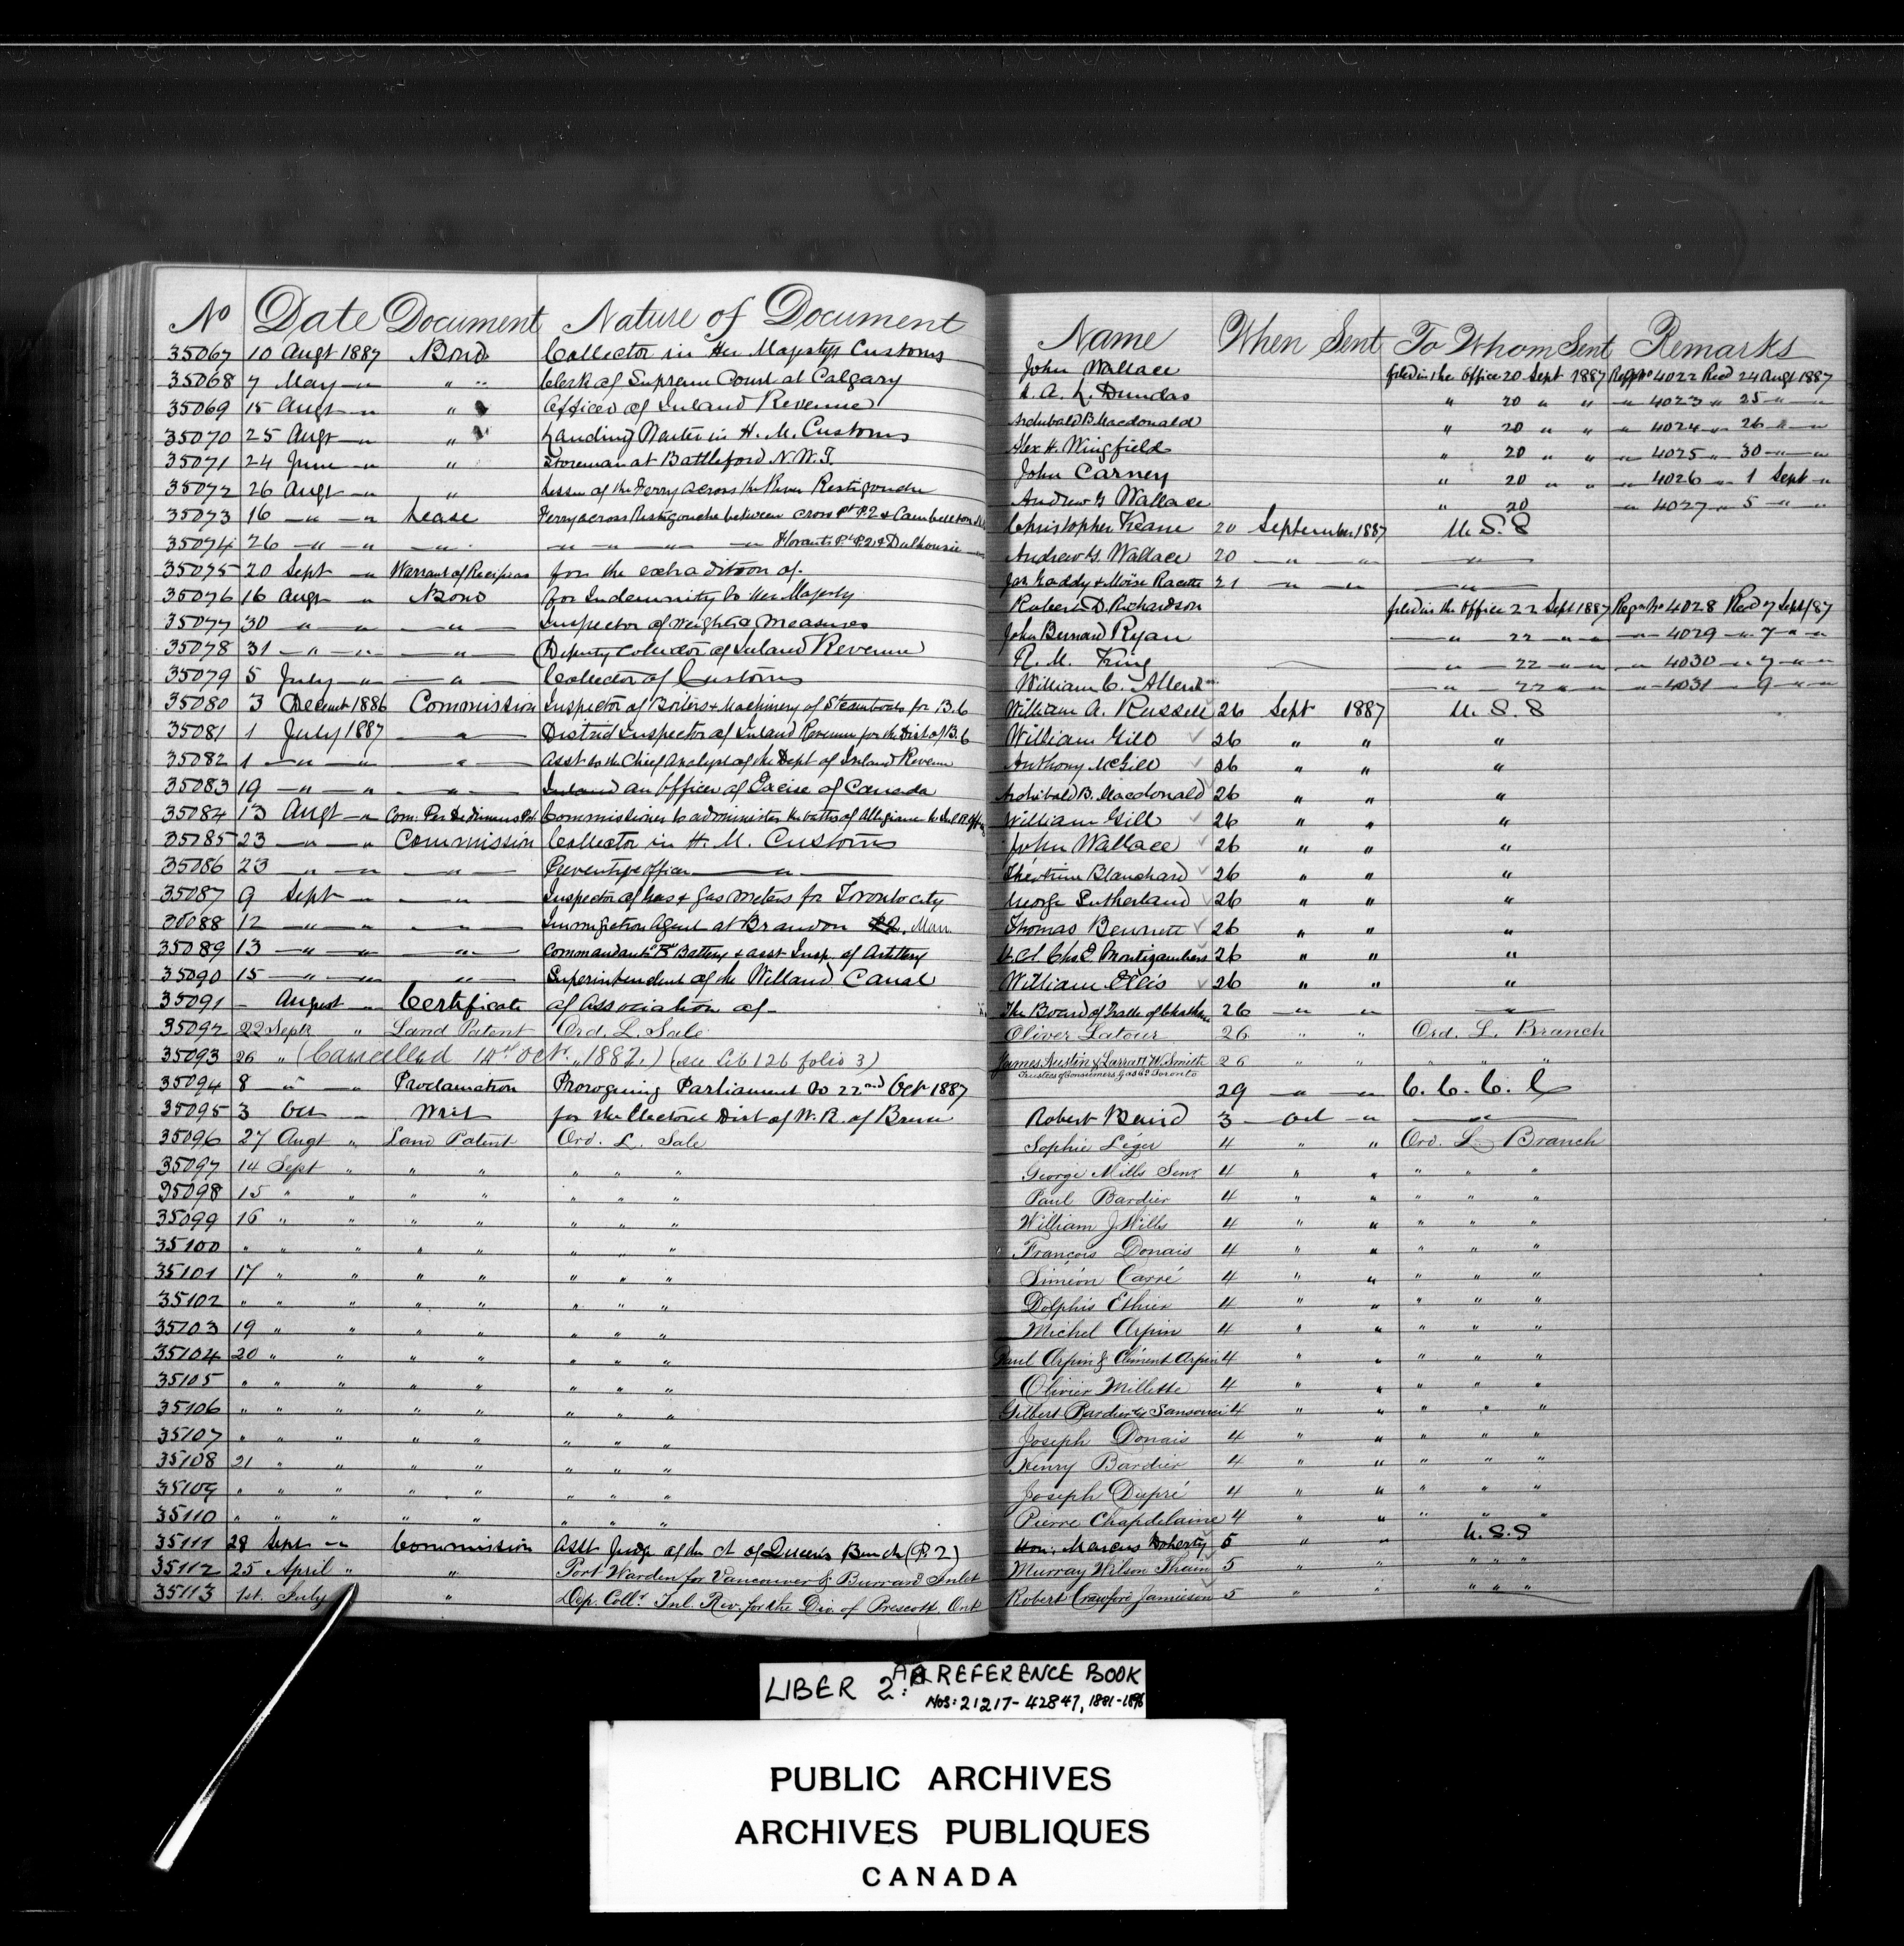 No Date Document Nature of Document Name When Sent To Whom Sent Remarks
35067 10 Augt 1887 Bond Collector in Her Majestys Customs John Wallace filed in the office 20 Sept 1887 Regr No 4022 Recd 24 Augt 1887
35068 7 May " " " Clerk of Supreme Court at Calgary A. L. Dundas " 20 " " " 4023 " 25 " "
35069 15 Augt " " Officer of Inland Revenue Archibald B. Macdonald " 20 " " " 4024 " 26 " "
35070 25 Augt " " Landing Waiter in H. M. Customs Alex H. Wingfield " 20 " " " 4025 " 30 " "
35071 24 June " " Storeman at Battleford N.W.T. John Carney " 20 " " " 4026 " 1 Sept "
35072 26 Augt " " Lessee of the Ferry across the River Restigouche Andrew G Wallace " 20 " 4027 " 5 " "
35073 16 " " Lease Ferry across Restigouche between Cross Pt P.2 & Cambellton Christopher Keane 20 September 1887 U.S.S
35074 26 " " " " " " " Pt P.2 & Dalhousie Andrew G. Wallace 20 " " "
35075 20 Sept " Warrant of Recipias for the extradition of Jas Gaddy & Moïse Racette 21 " " "
35076 16 Augt " Bond for Indemnity to Her Majesty Robert D. Richardson filed in the office 22 Sept 1887 Regr No 4028 Recd 7 Sept/87
35077 30 " " " Inspector of Weights & Measures John Bernard Ryan " 22 " " " 4029 " 7 " "
35078 31 " " " Deputy Collector of Inland Revenue R. M. King " 22 " " " 4030 " 7 " "
35079 5 July " " Collector of Customs William C. Allen " 22 " " " 4031 " 9 " "
35080 3 Decembr 1886 Commission Inspector of Boilers & Machinery of Steamboats for B.C William A. Russell 26 Sept 1887 U.S.S
35081 1 July 1887 " District Inspector of Inland Revenue for the Dist of B.C William Gill 26 " " "
35082 1 " " " Asst to the Chief Analyst of the Dept of Inland Revenue Anthony McGill 26 " " "
35083 19 " " " Inland an Officer of Excise of Canada Archibald B. Macdonald 26 " " "
35084 13 Augt " Com. Per Dedimus Pot. Commissioner to administer the oaths of Allegiance to William Gill 26 " " "
35085 23 " " Commission Collector in H. M. Customs John Wallace 26 " " "
35086 23 " " " Preventive officer " Blanchard 26 " " "
35087 9 Sept " " Inspector of Gas & Gas Meters for Toronto city George Sutherland 26 " " "
35088 12 " " " Immigration Agent at Brandon Man. Thomas Bennett 26 " " "
35089 13 " " " Commandant "B" Battery & asst Insp. of Artillery Lt. Col. Chs E. Montizambert 26 " " "
35090 15 " " " Superintendent of the Welland Canal William Ellis 26 " " "
35091 - August " Certificate of Association of The Board of Trade of Chatham 26 " " "
35092 22 Septr " Land Patent Ord. L. Sale Oliver Latour 26 " " Ord. L. Branch
35093 26 " (Cancelled 14th Octr. 1887.) (see Lib 126 folio 3) James Austin & Larratt W. Smith 26 " " " " "
Trustees of Consumers Gas Co Toronto
35094 8 " " Proclamation Proroguing Parliament to 22nd Oct 1887 29 " " C.C.C.C
35095 3 Oct " Writ for the Electoral Dist of W. R. of Bruce Robert Baird 3 Oct " "
35096 27 Augt " Land Patent Ord. L. Sale Sophie Léger 4 " " Ord. L. Branch
35097 14 Sept " " " " " " George Mills Senr 4 " " " " "
35098 15 " " " " " " " Paul Bardier 4 " " " " "
35099 16 " " " " " " " William J Wills 4 " " " " "
35100 " " " " " " " " François Donais 4 " " " " "
35101 17 " " " " " " " Siméon Carré 4 " " " " "
35102 " " " " " " " " Dolphis Ethier 4 " " " " "
35103 19 " " " " " " " Michel Arpin 4 " " " " "
35104 20 " " " " " " " Paul Arpin & Clément Arpin 4 " " " " "
35105 " " " " " " " " Olivier Millette 4 " " " " "
35106 " " " " " " " " Gilbert Bardier 4 " " " " "
35107 " " " " " " " " Joseph Donais 4 " " " " "
35108 21 " " " " " " " Henry Bardier 4 " " " " "
35109 " " " " " " " " Joseph Dupré 4 " " " " "
35110 " " " " " " " " Pierre Chapdelaine 4 " " " " "
35111 28 Sept " Commission Asst Judge of the Ct of Queen's Bench (P.2) Hon: Marcus Doherty 5 " " U.S.S
35112 25 April " " Port Warden for Vancouver & Burrard Inlet Murray Wilson Thain 5 " " " " "
35113 1st. July " Dep. Collr. Inl. Rev. for the Div. of Prescott, Ont Robert Crawford Jamieson 5 " " " " "
LIBER 2: A REFERENCE BOOK
NOS: 21217-42847, 1881-1896
PUBLIC ARCHIVES
ARCHIVES PUBLIQUES
CANADA